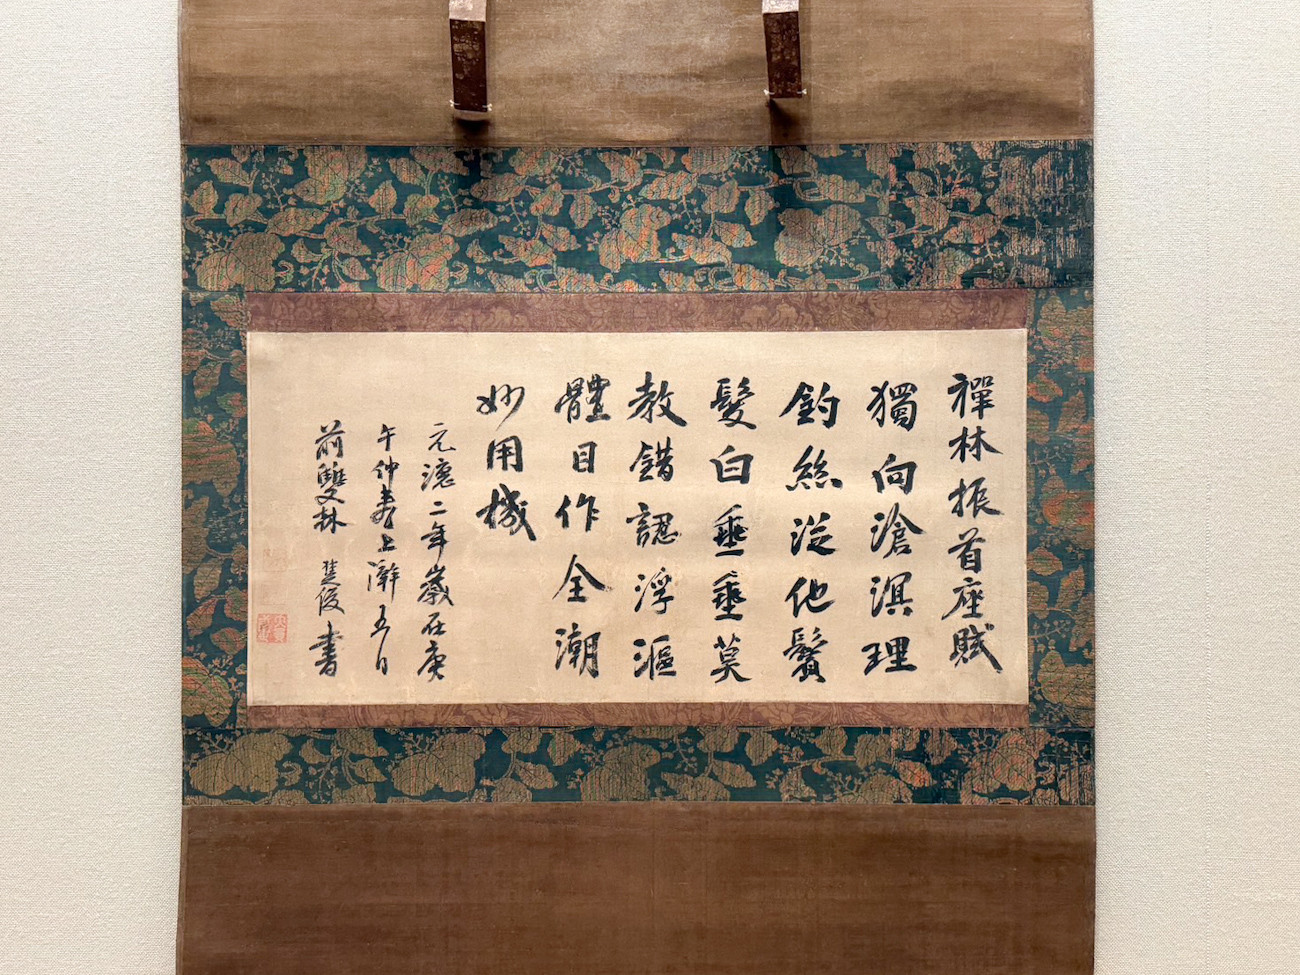 禪林振首座賦
獨向滄溟理
釣絲從他鬢
髮白垂垂莫
教錯認浮漚
體目作全潮
妙用機
元德二年歲在庚
午仲春上澣五日
前雙林 慧俊 書